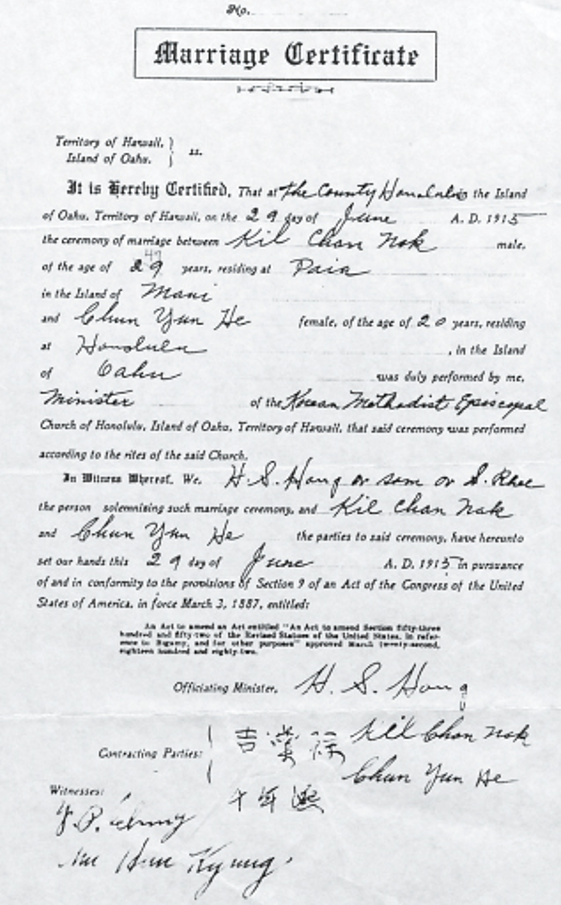 No.
Marriage Certificate
Territory of Hawaii,
Island of Oahu.
} ss.
It is Hereby Certified, That at the County Honolulu in the Island
of Oahu, Territory of Hawaii, on the 29 day of June A. D. 1915
the ceremony of marriage between Kil Chan Nok male,
of the age of 29 years, residing at Paia
in the Island of Maui
and Chun Yun He female, of the age of 20 years, residing
at Honolulu, in the Island
of Oahu was duly performed by me,
Minister of the Korean Methodist Episcopal
Church of Honolulu, Island of Oahu, Territory of Hawaii, that said ceremony was performed
according to the rites of the said Church.
In Witness Whereof, We, H. S. Hong or som or S. Rhee
the person solemnising such marriage ceremony, and Kil Chan Nok
and Chun Yun He the parties to said ceremony, have hereunto
set our hands this 29 day of June A. D. 1915 in pursuance
of and in conformity to the provisions of Section 9 of an Act of the Congress of the United
States of America, in force March 3, 1887, entitled:
An Act to amend an Act entitled "An Act to amend Section fifty-three
hundred and fifty-two of the Revised Statues of the United States, in refer-
ence to Bigamy, and for other purposes" approved March twenty-second,
eighteen hundred and eighty-two.
Officiating Minister, H. S. Hong
Contracting Parties: 吉 祿 Kil Chan Nok
Chun Yun He
Witnesses: 年
J. P.
Hun Kyung.